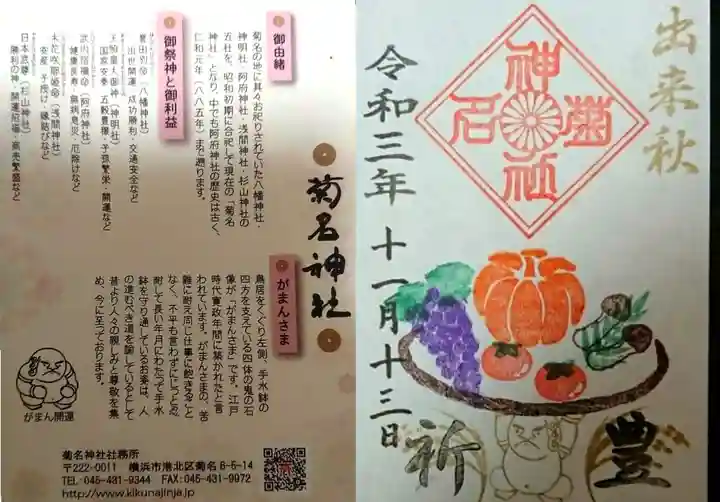 菊名神社
御由緒
菊名の地に其々お祀りされていた八幡神社・
神明社・阿府神社・浅間神社・杉山神社の
五社を、昭和初期に合祀して現在の「菊名
神社」となり、中でも阿府神社の歴史は古く、
仁和元年(八八五年)まで遡ります。
御祭神と御利益
誉田別命(八幡神社)
出世開運・成功勝利・交通安全など
天照皇大御神(神明社)
国家安泰・五穀豊穣・子孫繁栄・開運など
武内宿禰命(阿府神社)
健康長寿・無病息災・厄除けなど
木花咲耶姫命(浅間神社)
安産・子授け・縁結びなど
日本武尊(杉山神社)
勝利の神・開運招福・商売繁盛など
がまんさま
鳥居をくぐり左側、手水鉢の
四方を支えている四体の鬼の石
像が「がまんさま」です。江戸
時代寛政年間に築かれたと言
われています。がまんさまの、苦
難に耐え同じ仕事に飽きること
なく、不平も言わずにじっと忍
耐して長い年月にわたって手水
鉢を守り通しているお姿は、人
の進むべき道を諭しているとして
昔より人々の親しみと尊敬を集
め、今に至っております。
がまん開運
菊名神社社務所
〒222-0011 横浜市港北区菊名 6-5-14
TEL:045-431-9344 FAX:045-431-9972
http://www.kikunajinja.jp
出来秋
菊名神社
令和三年 十一月十三日
豊
祈